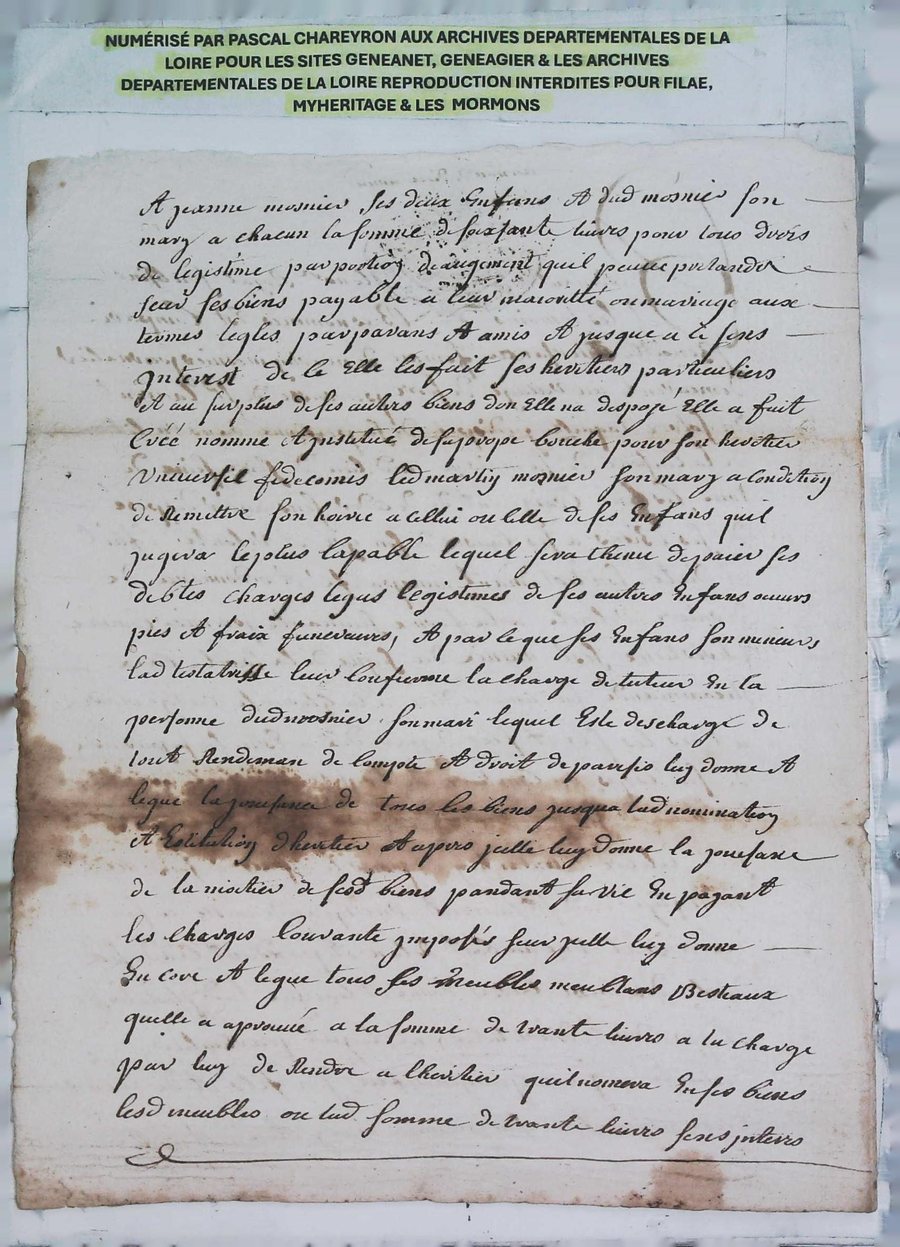 NUMÉRISÉ PAR PASCAL CHAREYRON AUX ARCHIVES DEPARTEMENTALES DE LA
LOIRE POUR LES SITES GENEANET, GENEAGIER & LES ARCHIVES
DEPARTEMENTALES DE LA LOIRE REPRODUCTION INTERDITES POUR FILAE,
MYHERITAGE & LES MORMONS
A jeanne mosnier ses deux Enfans A dud mosnier son
mary a chacun la somme de soixsante livres pour tous drois
de legistime par portion de augement quil peuve pretandre
sur ses biens payable a leur maioritté ou mariage aux
termes legles par parans A amis A jusque a ce sens
jnterest de ce Elle les fait ses heretiers particuliers
A au surplus de ses autres biens don Elle na despozé Elle a fait
Créé nomme A justitué de sa propre bouche pour son heretier
vneuersel fidecomis led martin mosnier son mary a condition
de Remettre son hoirie a cellui ou celle de ses Enfans quil
jugera le plus capable lequel sera thenu de paier ses
debtes charges legas legistimes de ses autres Enfans oeuurs
pies A fraix funeraures, A par le que ses Enfans son mineurs
lad testatrisse leur confierme la charge de tuteur En la
personne dud mosnier son mari lequel Este descharge de
tout Rendeman de compte A droit de luy donne A
legue la jouesance de tous les biens jusqua lad nomination
A Estitution dheretier A apres jcelle luy donne la jouesance
de la moitier de sesd biens pandant sa vie En payant
les charges Courante jmposés sur jcelle luy donne
En core A legue tous ses meubles meublans Bestiaux
quelle a aprouué a la somme de trante livres a la charge
par luy de Rendre a lheretier quil nomera En ses biens
lesd meubles ou lad somme de trante livres sens jnteres